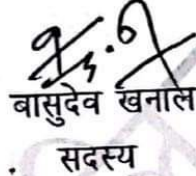 बासुदेव खनाल
सदस्य